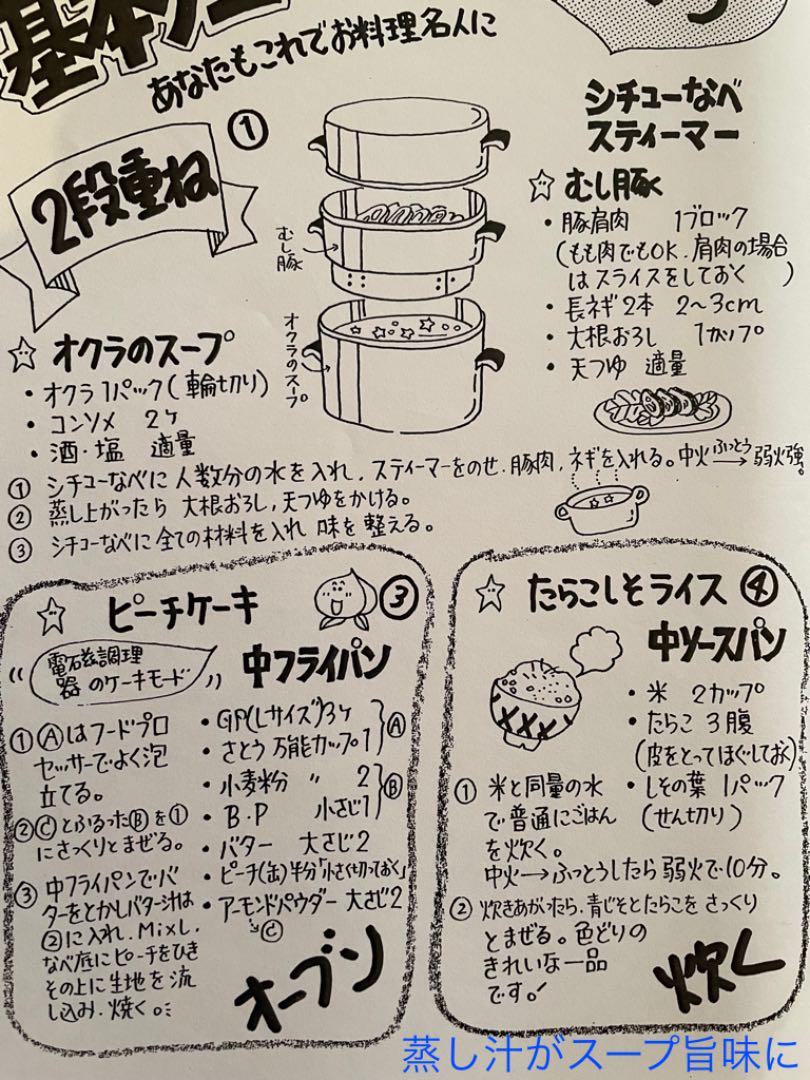 あなたもこれでお料理名人に
2段重ね
①
シチューなべ
スティーマー
☆ むし豚
・豚肩肉 1ブロック
(もも肉でもOK.肩肉の場合
はスライスをしておく )
・長ネギ2本 2〜3cm
・大根おろし 1カップ
・天つゆ 適量
むし豚
オクラのスープ
☆ オクラのスープ
・オクラ1パック(輪切り)
・コンソメ 2ヶ
・酒・塩 適量
① シチューなべに人数分の水を入れ、スティーマーをのせ、豚肉、ネギを入れる。中火 ふっとう→ 弱火強。
② 蒸し上がったら 大根おろし、天つゆをかける。
③ シチューなべに全ての材料を入れ 味を整える。
☆ ピーチケーキ ③
電磁調理
器のケーキモード
中フライパン
・GP(Lサイズ)3ヶ
・さとう 万能カップ1 Ⓐ
・小麦粉 〃 2
・B.P 小さじ1 Ⓑ
・バター 大さじ2
・ピーチ(缶)半分「小さく切っておく」
・アーモンドパウダー 大さじ2
→Ⓒ
①Ⓐはフードプロ
セッサーでよく泡
立てる。
②ⒸとふるったⒷを①
にさっくりとまぜる。
③ 中フライパンでバ
ターをとかしバター汁は
②に入れ、Mixし、
なべ底にピーチをひき
その上に生地を流
し込み、焼く。
オーブン
☆ たらこしそライス ④
中ソースパン
・米 2カップ
・たらこ 3腹
(皮をとってほぐしておく)
・しその葉 1パック
(せん切り)
① 米と同量の水
で普通にごはん
を炊く。
中火→ふっとうしたら弱火で10分。
② 炊きあがったら、青じそとたらこを さっくり
とまぜる。色どりの
きれいな一品
です。
炊く
蒸し汁がスープ旨味に